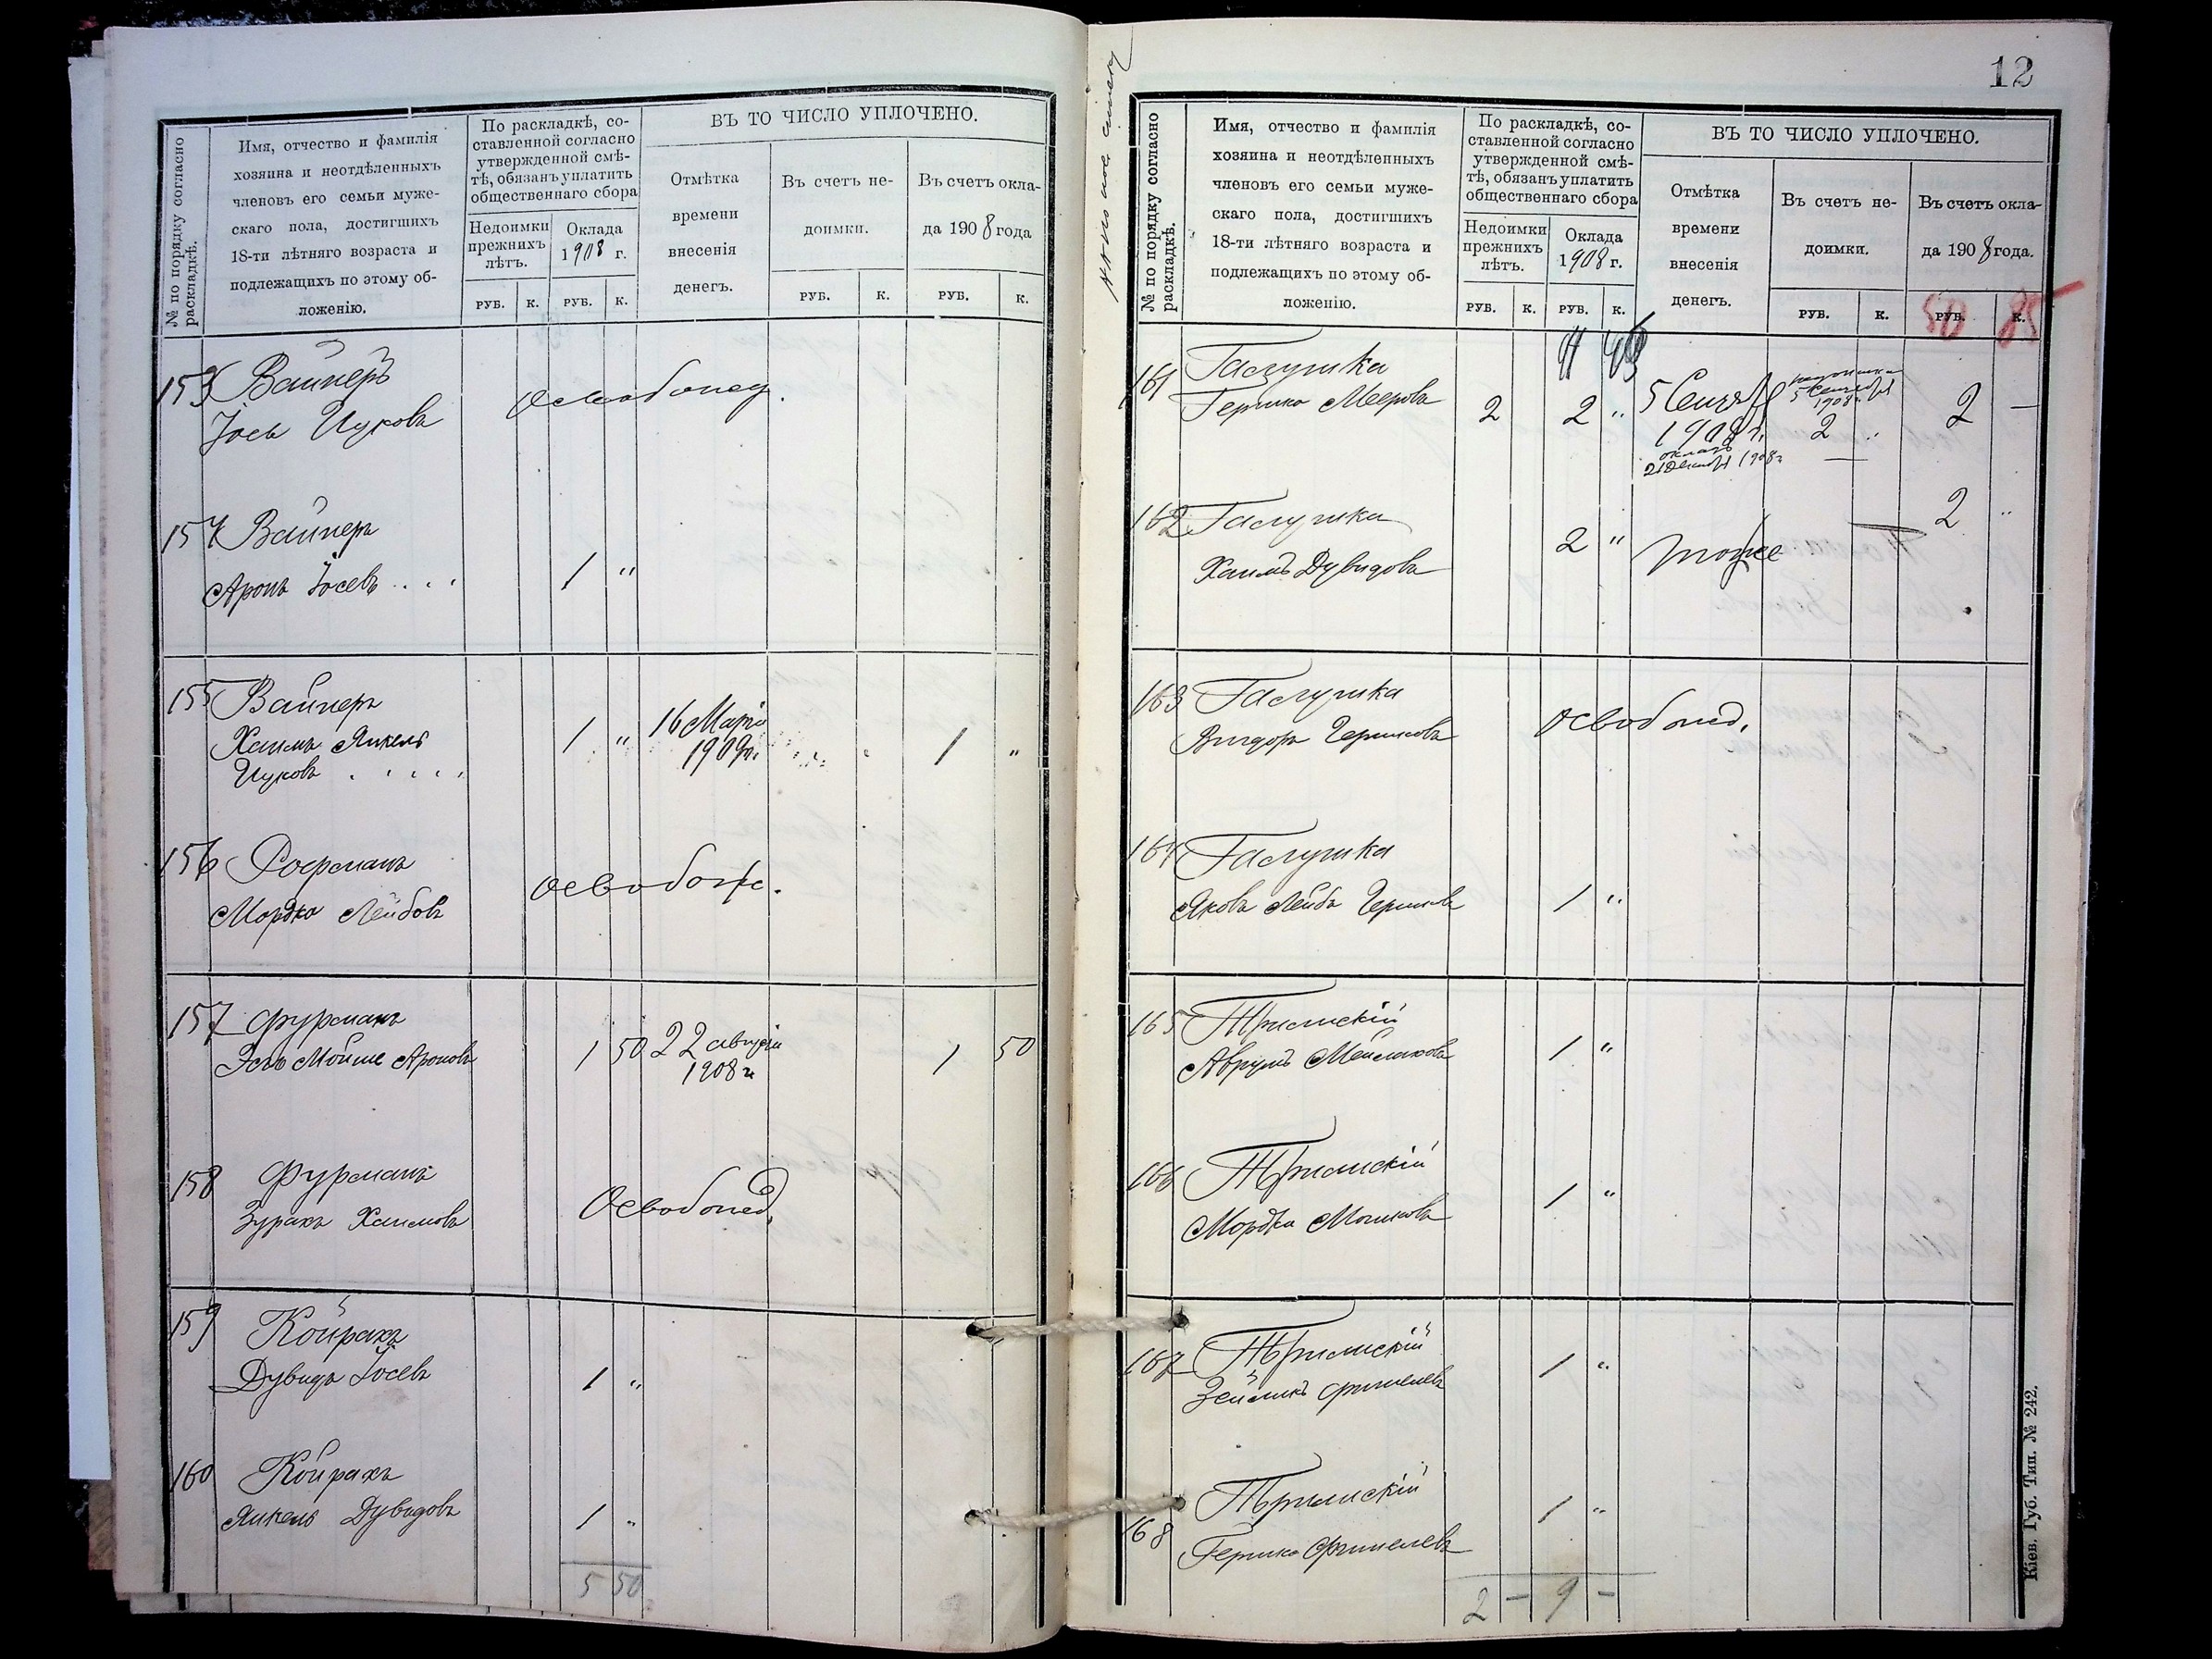 № по порядку согласно раскладкѣ.
Имя, отчество и фамилія
хозяина и неотдѣленныхъ
членовъ его семьи муже-
скаго пола, достигшихъ
18-ти лѣтняго возраста и
подлежащихъ по этому об-
ложенію.
По раскладкѣ, со-
ставленной согласно
утвержденной смѣ-
тѣ, обязанъ уплатить
общественнаго сбора
Недоимки
прежнихъ
лѣтъ.
Оклада
1908 г.
ВЪ ТО ЧИСЛО УПЛОЧЕНО.
Отмѣтка
времени
внесенія
денегъ.
Въ счетъ не-
доимки.
Въ счетъ окла-
да 1908 года
РУБ. К. РУБ. К. РУБ. К. РУБ. К.
153 Вайнеръ
Іось Ицковъ
154 Вайнеръ
Аронъ Іосевъ 1 "
155 Вайнеръ
Хаимъ Янкель 1 " 16 Марта 1 "
Ицковъ 1909 г.
156
Мордко Лейбовъ
Освобожд.
157 Фурманъ
Мойше Ароновъ 1 50 22 августа 1 50
1908 г.
158 Фурманъ
Хаимовъ
Освобожд.
159 Койрахъ
Дувидъ Іосевъ 1 "
160 Койрахъ
Янкель Дувидовъ 1 "
5 50
12
№ по порядку согласно раскладкѣ.
Имя, отчество и фамилія
хозяина и неотдѣленныхъ
членовъ его семьи муже-
скаго пола, достигшихъ
18-ти лѣтняго возраста и
подлежащихъ по этому об-
ложенію.
По раскладкѣ, со-
ставленной согласно
утвержденной смѣ-
тѣ, обязанъ уплатить
общественнаго сбора
Недоимки
прежнихъ
лѣтъ.
Оклада
1908 г.
ВЪ ТО ЧИСЛО УПЛОЧЕНО.
Отмѣтка
времени
внесенія
денегъ.
Въ счетъ не-
доимки.
Въ счетъ окла-
да 1908 года.
РУБ. К. РУБ. К. РУБ. К. РУБ. К.
50 85
161 Галушка
Гершко Мееровъ 2 2 " 5 Сентяб 2 " 2 —
1908 г.
окладъ
21 Декабря 1908 г.
162 Галушка 2 "
Хаимъ Дувидовъ 2 " тоже
163 Галушка
Вигдоръ Гершковъ
Освобожд.
164 Галушка
Яковъ Лейба Гершковъ 1 "
165
Аврумъ 1 "
166
Мордко Мошковъ 1 "
167
Зейликъ 1 "
168
Гершко 1 "
2 — 9 —
Кіев. Губ. Тип. № 242.